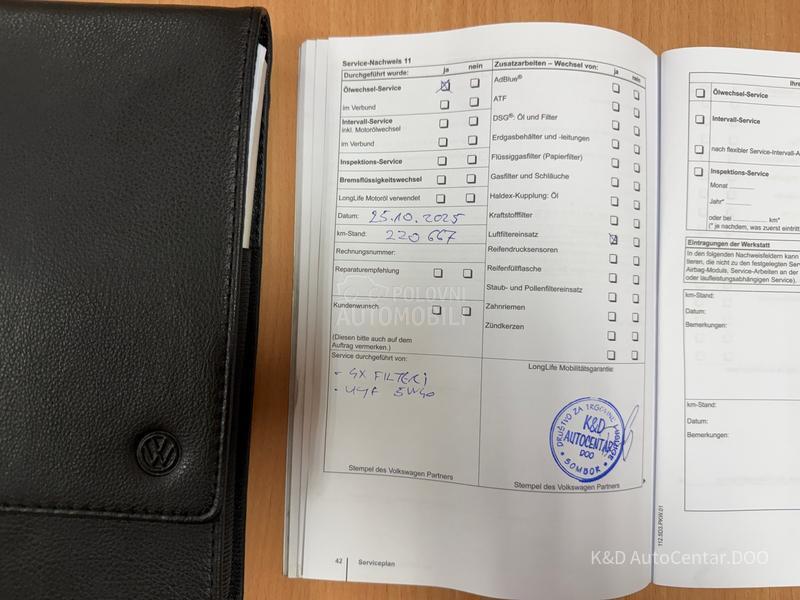 Service-Nachweis 11
Durchgeführt wurde: ja nein
Ölwechsel-Service
im Verbund
Intervall-Service
inkl. Motorölwechsel
im Verbund
Inspektions-Service
Bremsflüssigkeitswechsel
LongLife Motoröl verwendet
Datum: 25.10.2025
km-Stand: 220 667
Rechnungsnummer:
Reparaturempfehlung
Kundenwunsch
(Diesen bitte auch auf dem
Auftrag vermerken.)
Service durchgeführt von:
- 4X FILTERI
5W40
Stempel des Volkswagen Partners
Zusatzarbeiten – Wechsel von: ja nein
AdBlue®
ATF
DSG®: Öl und Filter
Erdgasbehälter und -leitungen
Flüssiggasfilter (Papierfilter)
Gasfilter und Schläuche
Haldex-Kupplung: Öl
Kraftstofffilter
Luftfiltereinsatz
Reifendrucksensoren
Reifenfüllflasche
Staub- und Pollenfiltereinsatz
Zahnriemen
Zündkerzen
LongLife Mobilitätsgarantie
DRUŠTVO ZA TRGOVINU
K&D
AUTOCENTAR
DOO
SOMBOR
Stempel des Volkswagen Partners
42 Serviceplan
112.5D3.PKW.01
Ölwechsel-Service
Intervall-Service
nach flexibler Service-Intervall-A
Inspektions-Service
Monat
Jahr*
oder bei km*
(* je nachdem, was zuerst eintritt
Eintragungen der Werkstatt
In den folgenden Nachweisfeldern kann
tieren, die nicht zu den festgelegten Serv
Airbag-Moduls, Service-Arbeiten an der
oder laufleistungsabhängigen Service).
km-Stand:
Datum:
Bemerkungen:
km-Stand:
Datum:
Bemerkungen:
POLOVNI
AUTOMOBILI
K&D AutoCentar.DOO